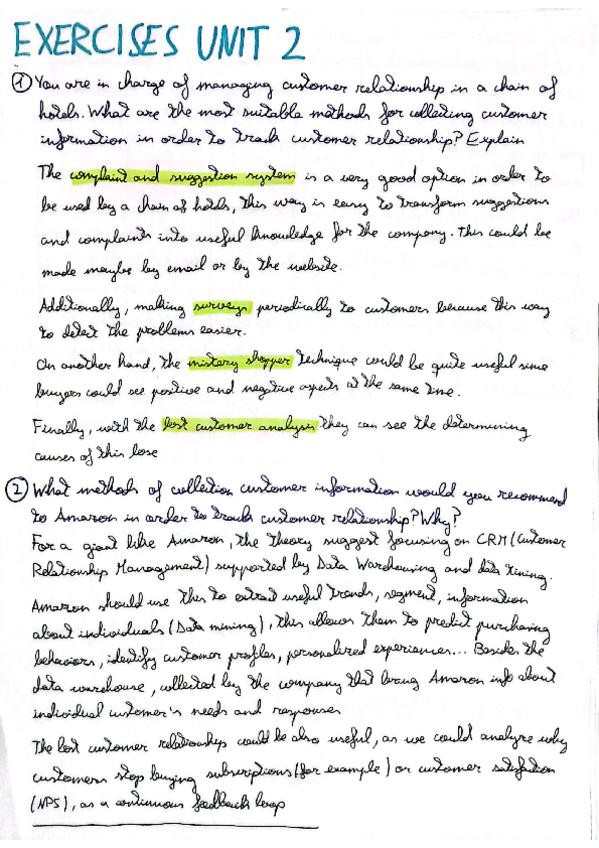 EXERCISES UNIT 2
① You are in charge of managing customer relationship in a chain of
hotels. What are the most suitable methods for collecting customer
information in order to track customer relationship? Explain
The complaint and suggestion system is a very good option in order to
be used by a chain of hotels, this way is easy to transform suggestions
and complaints into useful knowledge for the company. This could be
made maybe by email or by the website.
Additionally, making surveys periodically to customers because this way
to detect the problems easier.
On another hand, the mistery shopper technique could be quite useful since
buyers could see positive and negative aspects at the same time.
Finally, with the lost customer analysis they can see the determining
causes of this lose
② What methods of collection customer information would you recommend
to Amazon in order to track customer relationship? Why?
For a giant like Amazon, the theory suggest focusing on CRM (Customer
Relationship Management) supported by Data Warehousing and data mining.
Amazon should use this to extract useful trends, segment, information
about individuals (Data mining), this allows them to predict purchasing
behaviors, identify customer profiles, personalized experiences... Besides the
data warehouse, collected by the company that brung Amazon info about
individual customer's needs and responses
The lost customer relationship could be also useful, as we could analyze why
customers stop buying subscriptions (for example) or customer satisfaction
(NPS), as a continuous feedback loop